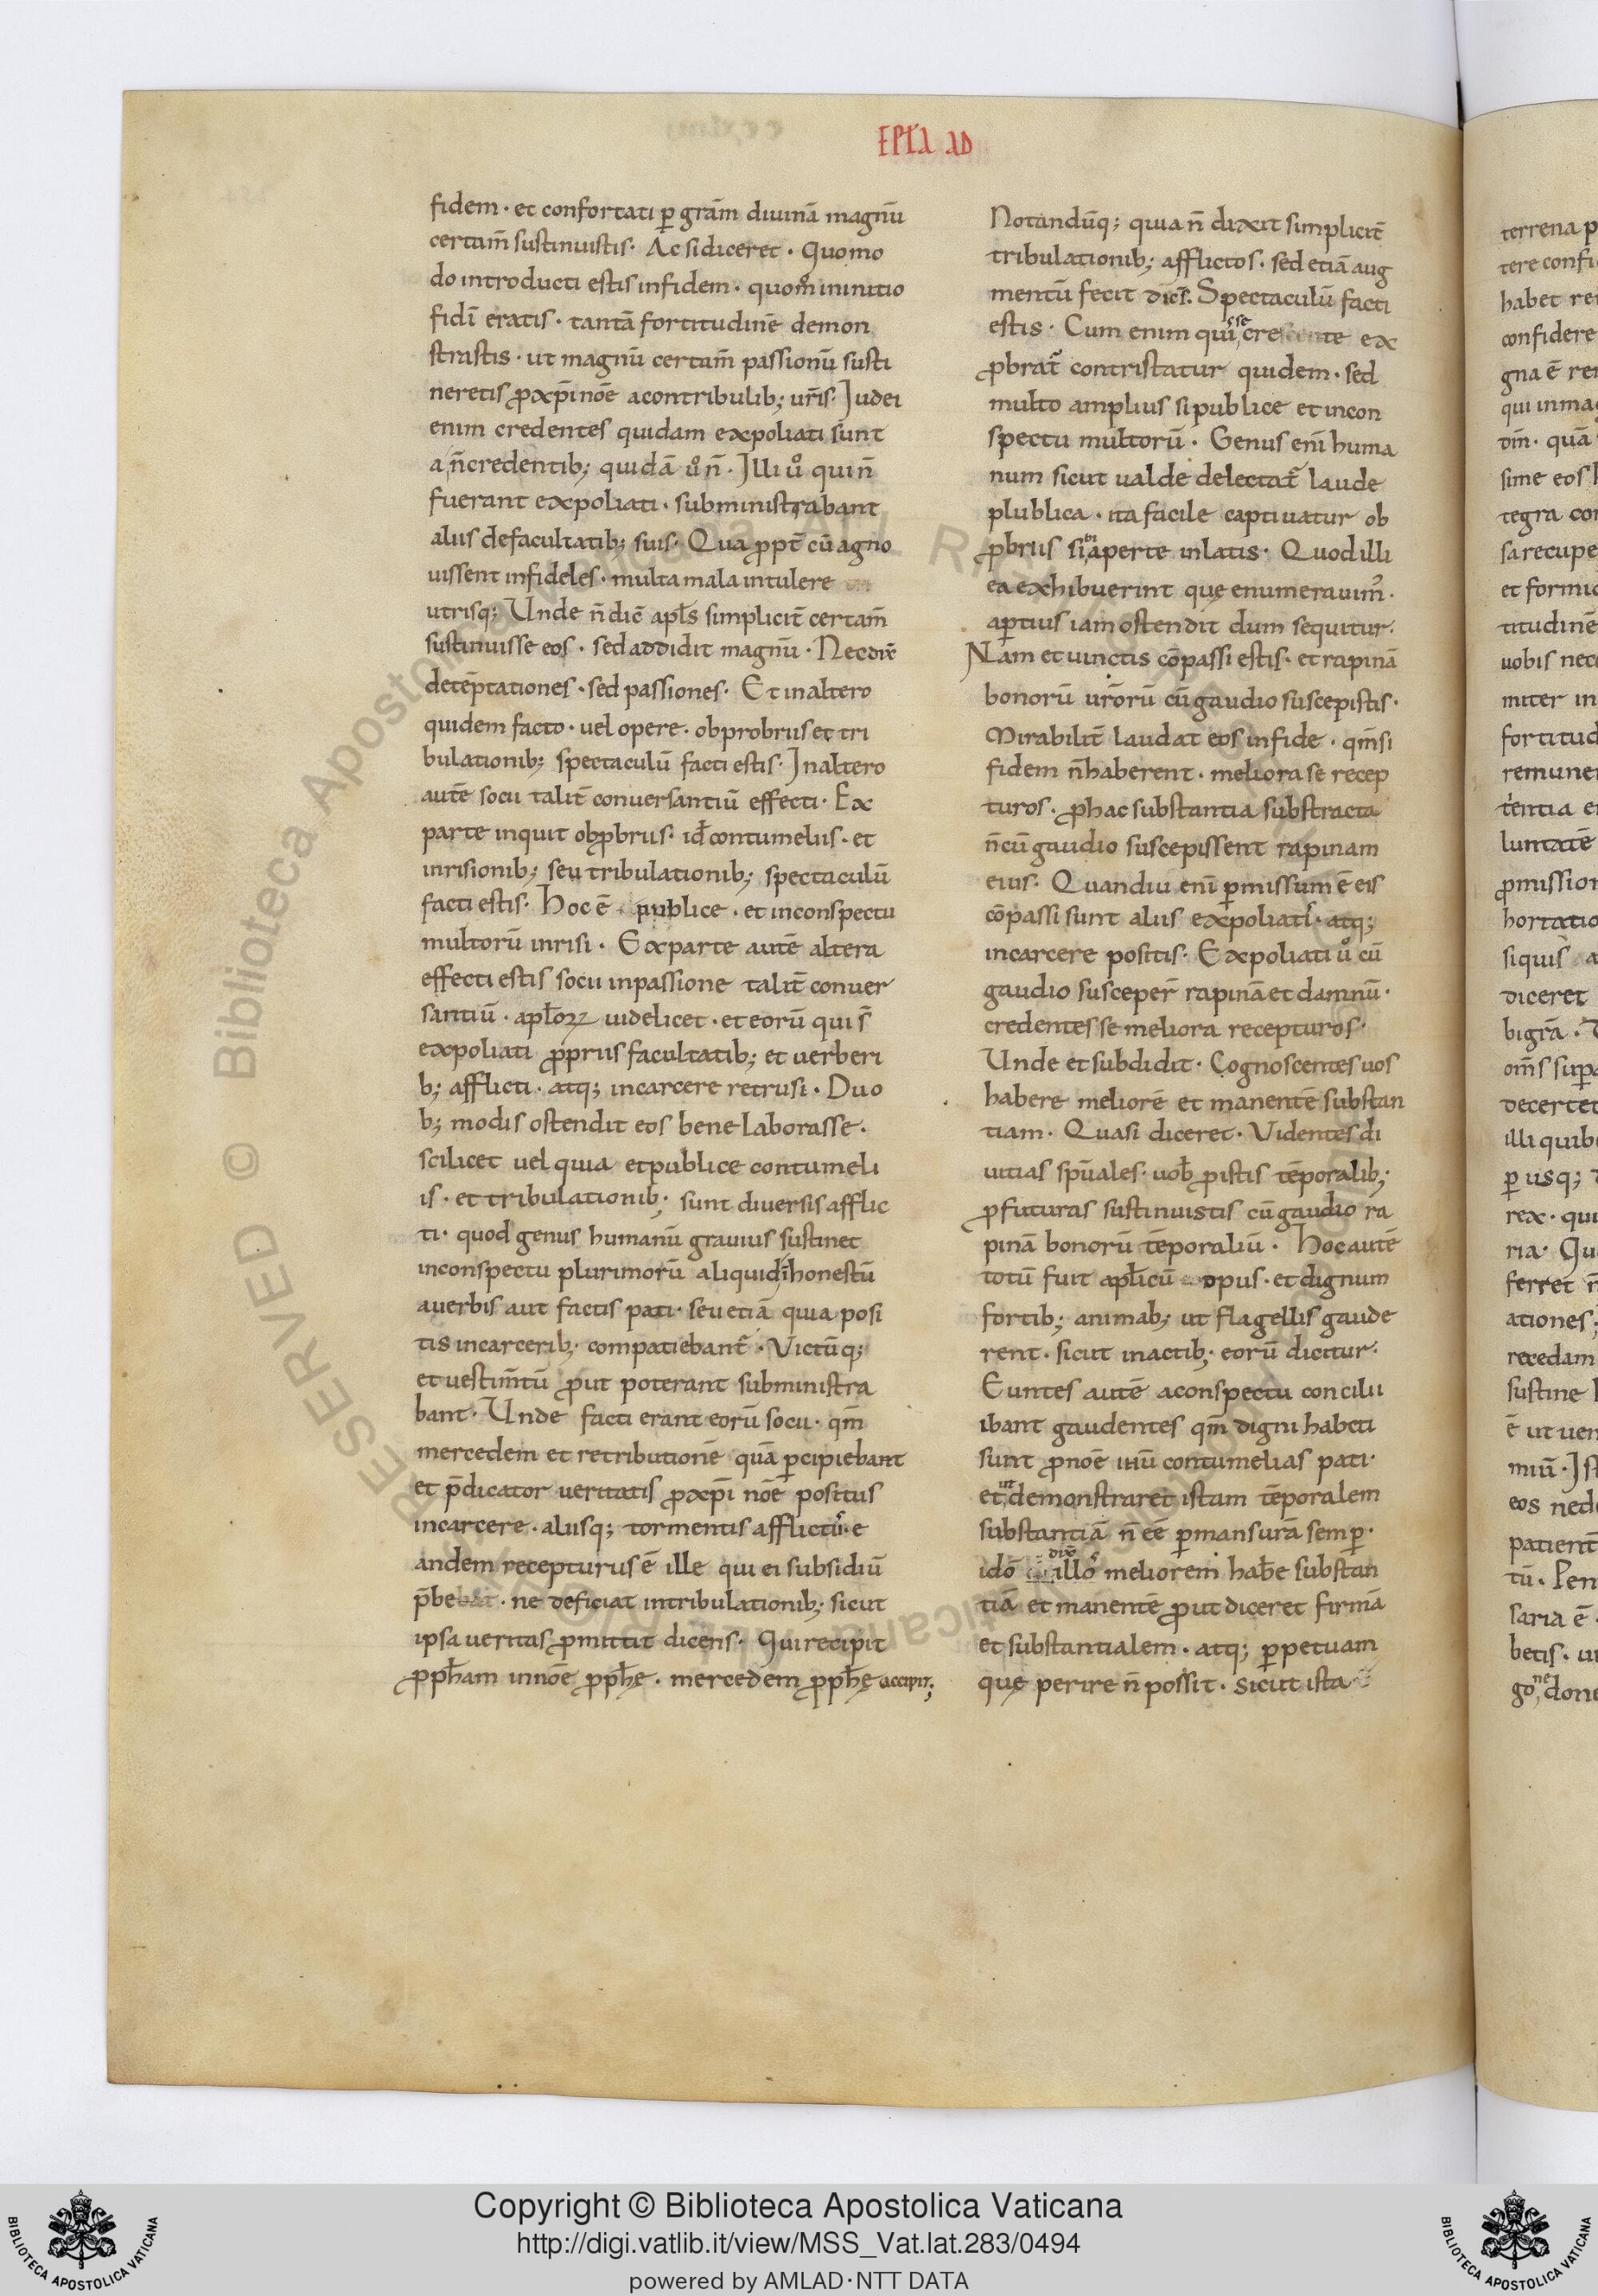 EPLA AD
fidem · et confortati ꝑ grām diuinā magnū
certam̄ sustinuistis · Ac si diceret · Quomo
do introducti estis in fidem · quom̊ in initio
fidī eratis · tantā fortitudinē demon
strastis · ut magnū certam̄ passionū susti
neretis ꝓ xp̄i nōe a contribulib; ur̄is · Iudei
enim credentes quidam expoliati sunt
a n̄ credentib; quidā ů n̄ · Illi ů qui n̄
fuerant expoliati · subministrabant
aliis de facultatib; suis · Qua ꝓpt̄ cū agno
uissent infideles · multa mala intulere
utrisq; Unde n̄ dic̄ apl̄s simplicit̄ certam̄
sustinuisse eos · sed addidit magnū · Nec dix̄
detēptationes · sed passiones · Et in altero
quidem facto · uel opere · obprobriis et tri
bulationib; spectaculū facti estis · In altero
autē socii talit̄ conuersantiū effecti · Ex
parte inquit obꝓbriis · id̄ contumeliis · et
inrisionib; seu tribulationib; spectaculū
facti estis · Hoc ē publice · et in conspectu
multorū inrisi · Ex parte autē altera
effecti estis socii in passione talit̄ conuer
santiū · apl̄oꝝ uidelicet · et eorū qui s̄
expoliati ꝓpriis facultatib; et uerberi
b; afflicti · atq; in carcere retrusi · Duo
b; modis ostendit eos bene laborasse ·
scilicet uel quia et publice contumeli
is · et tribulationib; sunt diuersis afflic
ti · quod genus humanū grauius sustinet
in conspectu plurimorū aliquid īhonestū
a uerbis aut factis pati · seu etiā quia posi
tis in carcerib; compatiebant᷑ · Victūq;
et uestim̄tū ꝓut poterant subministra
bant · Unde facti erant eorū socii · qm̄
mercedem et retributionē quā ꝑcipiebant
et p̄dicator ueritatis ꝓ xp̄i nōe positus
in carcere · aliisq; tormentis afflictus · e
andem recepturus ē ille qui ei subsidiū
p̄bebat · ne deficiat in tribulationib; sicut
ipsa ueritas ꝓmittit dicens · Qui recipit
ꝓph̄am in nōe ꝓph̄ę · mercedem ꝓph̄ę accipit;
Notandūq; quia n̄ dixit simplicit̄
tribulationib; afflictos · sed etiā aug
mentū fecit dic̄s · Spectaculū facti
estis · Cum enim quis secrete ex
ꝓbrat᷑ contristatur quidem · sed
multo amplius si publice et in con
spectu multorū · Genus enī huma
num sicut ualde delectat᷑ laude
plublica · ita facile captiuatur ob
ꝓbriis sibi aperte inlatis · Quod illi
ea exhibuerint quę enumerauim᷒ ·
aꝑtius iam ostendit dum sequitur ·
Nam et uinctis cōpassi estis · et rapinā
bonorū ur̄orū cū gaudio suscepistis ·
Mirabilit̄ laudat eos in fide · qm̄ si
fidem n̄ haberent · meliora se recep
turos · ꝓ hac substantia substracta
n̄ cū gaudio suscepissent rapinam
eius · Quandiu enī ꝑmissum ē eis
cōpassi sunt aliis expoliatis · atq;
in carcere positis · Expoliati ů cū
gaudio susceper̄ rapinā et damnū ·
credentes se meliora recepturos ·
Unde et subdidit · Cognoscentes uos
habere meliorē et manentē substan
tiam · Quasi diceret · Videntes di
uitias sp̄uales · uob̄ ꝓ istis tēporalib;
ꝓfuturas sustinuistis cū gaudio ra
pinā bonorū tēporaliū · Hoc autē
totū fuit apl̄icū opus · et dignum
fortib; animab; ut flagellis gaude
rent · sicut in actib; eorū dicitur ·
Euntes autē a conspectu concilii
ibant gaudentes qm̄ digni habiti
sunt ꝓ nōe ihū contumelias pati ·
et ut demonstraret istam tēporalem
substantiā n̄ eē ꝑmansurā semꝑ ·
idō dix̄ illos meliorem hab̄e substan
tiā et manentē ꝓut diceret firmā
et substantialem · atq; ꝑpetuam
quę perire n̄ possit · sicut ista
terrena p
tere confi
habet re
confidere
gna ē re
qui in ma
dn̄i · quā
sime eos
tegra co
sa recupe
et formi
titudinē
uobis nec
miter in
fortitud
remune
luntatē
ꝓmission
hortatio
si quis a
diceret
decertet
illi quib
ꝑ usq;
rex · qui
ria · Qu
ferret n̄
ationes;
recedam
sustine
ē ut uen
miū · Ist
eos ned
patient̄
saria ē ·
betis · ui
go ne done
Copyright © Biblioteca Apostolica Vaticana
http://digi.vatlib.it/view/MSS_Vat.lat.283/0494
powered by AMLAD·NTT DATA
BIBLIOTECA APOSTOLICA VATICANA
BIBLIOTECA APOSTOLICA VATICANA